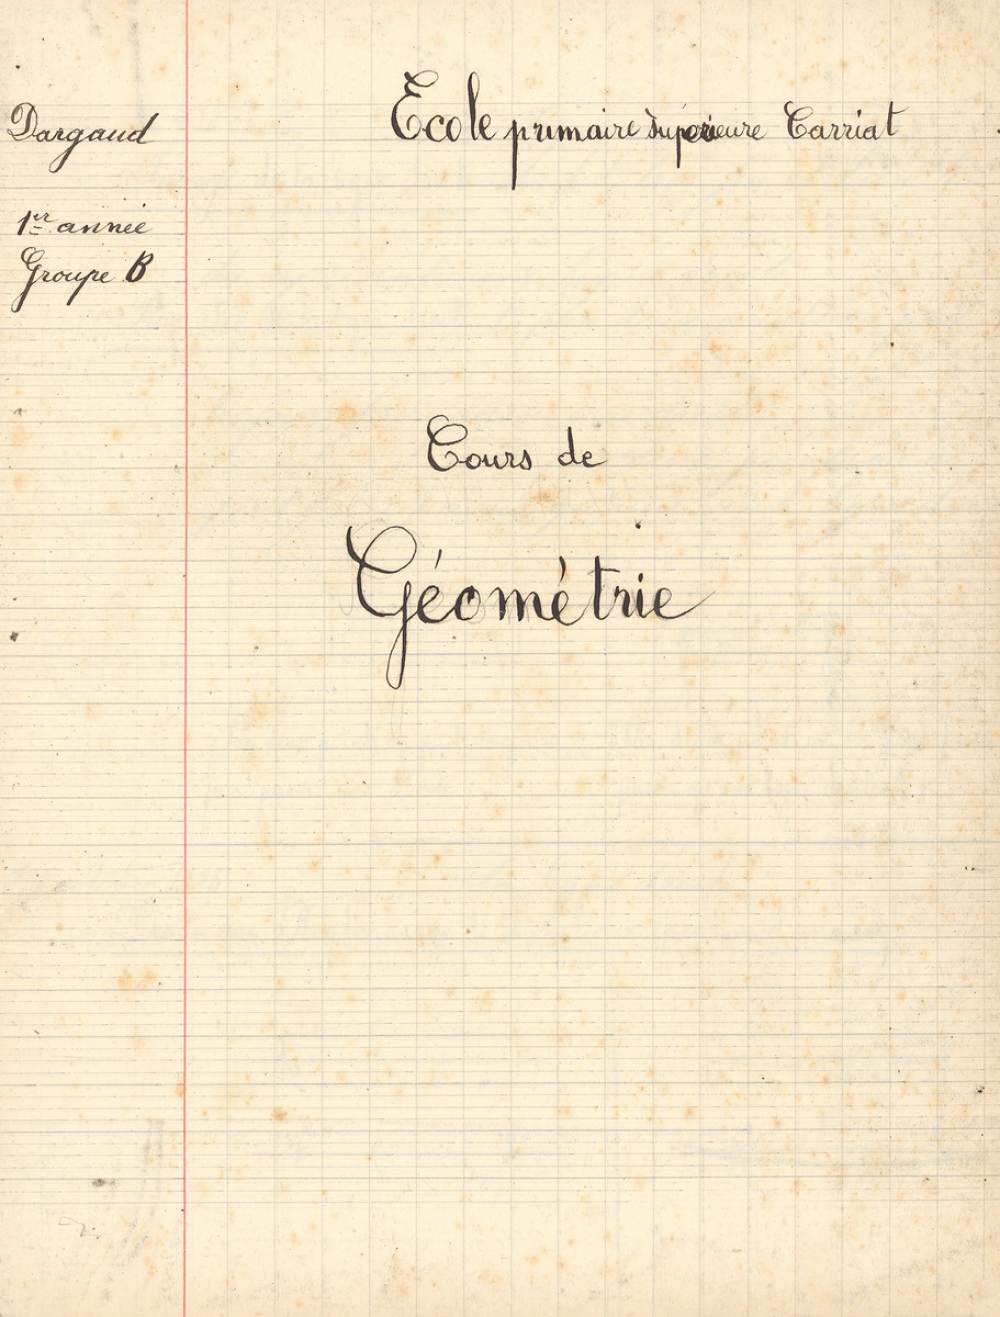 Dargaud
Ecole primaire supérieure Carriat
1er année
Groupe B
Cours de
Géométrie